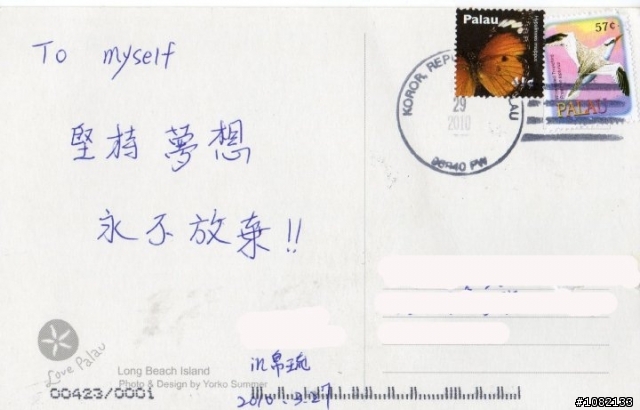 To myself
堅持 夢想
永不放棄!!
in 帛琉
2010.3.27
Palau
Hypolimnas misippus
57¢
PALAU
KOROR, REPU
LAU
29
2010
96940 PW
Love Palau
Long Beach Island
Photo & Design by Yorko Summer
00423/0001
#1082133